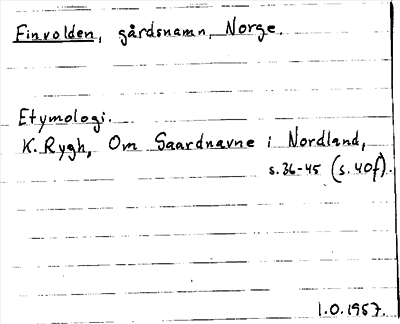 Finvolden, gårdsnamn, Norge.
Etymologi.
K. Rygh, Om Gaardnavne i Nordland,
s. 36-45 (s. 40f).
1.O.1957.